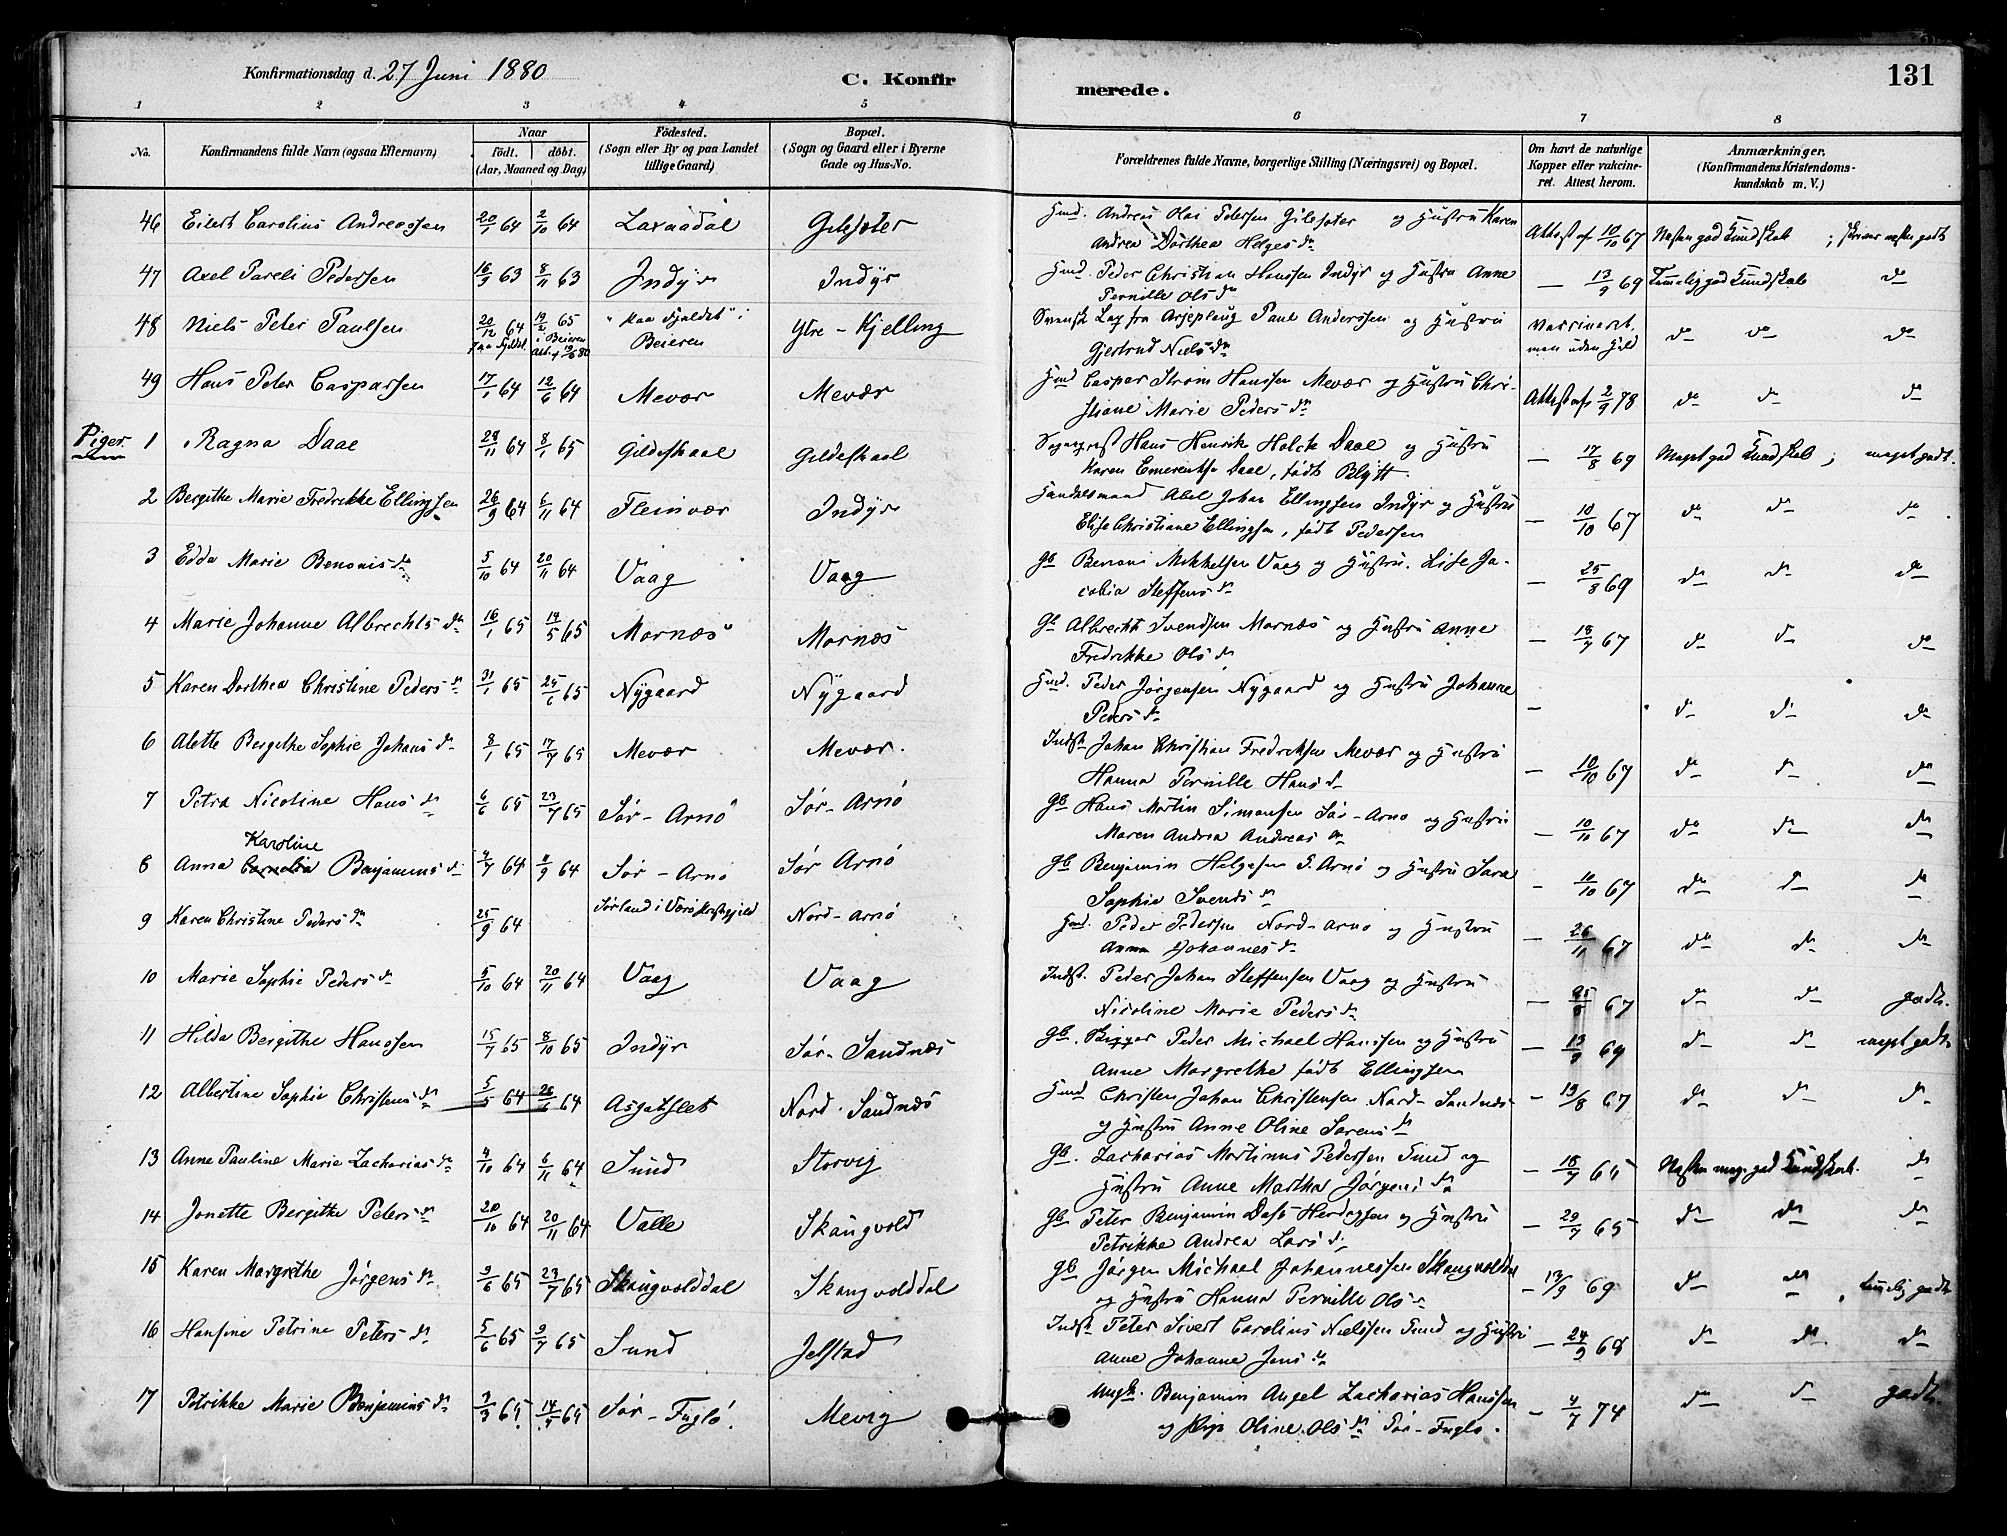 Konfirmationsdag d. 27 Juni 1880
C. Konfirmerede.
131
1 2 3 4 5 6 7 8
No.
Konfirmandens fulde Navn (ogsaa Efternavn)
Naar
Födt. döbt.
(Aar, Maaned og Dag)
Födested.
(Sogn eller By og paa Landet
tillige Gaard)
Bopæl.
(Sogn og Gaard eller i Byerne
Gade og Hus-No.
Forældrenes fulde Navne, borgerlige Stilling (Næringsvei) og Bopæl.
Om havt de naturlige
Kopper eller vakcine-
ret. Attest herom.
Anmærkninger,
(Konfirmandens Kristendoms-
kundskab m. V.)
46 Eilert Carolius Andreassen 20/1 64 2/10 64 Laxaadal Gilesæter Gmd. Andreas Olai Pedersen Gilesæter og Hustru Karen Attest af 10/10 67 Næsten god Kundskab ; skriver næsten godt
Andrea Dorthea Helgesdn
47 Axel Pareli Pedersen 16/9 63 8/11 63 Indyr Indyr Gmd. Peder Christian Hanssen Indyr og Hustru Anne — 13/9 69 Temmelig god Kundskab do
Pernille Olsdn
48 Niels Peter Paulsen 20/12 64 paa Fjeldet 19/2 65 i Beieren "paa Fjeldet" i Beieren Ytre-Kjelling Svensk Lap fra Arjeplaug Paul Anderssen og Hustru Vaccineret, men uden Held do do do
Gjertrud Nielsdn
49 Hans Peter Casparsen 17/1 64 12/6 64 Mevær Mevær Gmd Casper Strøm Hanssen Mevær og Hustru Chri- Attest af 2/9 78 do do do
stiane Marie Pedersdn
Piger
1 Ragna Daae 28/11 64 8/1 65 Gildeskaal Gildeskaal Sognepræst Hans Henrik Holck Daae og Hustru — 17/8 69 Meget god Kundskab ; meget godt.
Karen Emerentse Daae, født Blytt.
2 Bergitte Marie Fredrikke Ellingsen 26/9 64 6/11 64 Fleinvær Indyr Handelsmand Abel Johan Ellingsen Indyr og Hustru — 10/10 67 do do do
Elise Christiane Ellingsen, født Pedersen
3 Edda Marie Benonisdn 5/10 64 20/11 64 Vaag Vaag Gb Benoni Mikkelsen Vaag og Hustru Lise Ja- — 25/8 69 do do do
cobia Steffensdn
4 Marie Johanne Albrechtsdn 16/1 65 14/5 65 Mornæs Mornæs Gb Albrecht Svendsen Mornæs og Hustru Anne — 18/7 67 do do do
Fredrikke Olsdn
5 Karen Dorthea Christine Pedersdn 31/1 65 25/6 65 Nygaard Nygaard Gmd. Peder Jørgensen Nygaard og Hustru Johanne — do do do
Pedersdn
6 Alette Bergithe Sophie Johansdn 8/1 65 17/4 65 Mevær Mevær. Indst. Johan Christian Fredriksen Mevær og Hustru — 10/10 67 do do do
Hanna Pernille Hansdn
7 Petra Nicoline Hansdn 6/6 65 23/7 65 Sør-Arnø Sør-Arnø Gb Hans Martin Simonsen Sør-Arnø og Hustru — 10/10 67 do do do
Maren Andrea Andreasdn
Karoline
8 Anna Cornelia Benjaminsdn 4/7 64 4/9 64 Sør-Arnø Sør Arnø Gb Benjamin Helgesen S. Arnø og Hustru Sara — 10/10 67 do do do
Sophie Svendsdn
9 Karen Christine Pedersdn 25/9 64 Sørland i Værø Præstegjeld Nord-Arnø Gmd. Peder Pedersen Nord-Arnø og Hustru — 26/11 67 do do do
Anna Johannesdn
10 Marie Sophie Pedersdn 5/10 64 20/11 64 Vaag Vaag Indst. Peder Johan Steffensen Vaag og Hustru — 25/8 67 do do godt.
Nicoline Marie Pedersdn
11 Hilda Bergithe Hanssen 15/7 65 8/10 65 Indyr Sør-Sandnæs Gb. Peder Michael Hanssen og Hustru — 13/9 69 do do meget godt
Anne Margrethe født Ellingsen
12 Albertine Sophie Christensdn 5/5 64 26/6 64 Asgotflet Nord-Sandnæs Gmd Christen Johan Christensen Nord-Sandnæs — 13/8 67 do do do
og Hustru Anne Oline Sørensdn
13 Anne Pauline Marie Zachariasdn 4/10 64 6/11 64 Sund Storvig Gb. Zacharias Martinus Pedersen Sund og — 18/7 65 Næsten meg. god Kundskab. do
Hustru Anne Martha Jørgensdn
14 Jonette Bergitte Petersdn 20/10 64 20/11 64 Valle Skaugvold Gb Peter Benjamin Dass Herdagsen og Hustru — 29/7 65 do do do
Petrikke Andrea Larsdn
15 Karen Margrethe Jørgensdn 9/6 65 23/7 65 Skaugvolddal Skaugvolddal Gb Jørgen Michael Johannessen Skaugvolddal — 13/9 69 do do temmelig godt
og Hustru Hanna Pernille Olsdn
16 Hansine Petrine Petersdn 5/6 65 9/7 65 Sund Jelstad Indst Peter Sivert Carolius Nielssen Sund og Hustru — 24/9 68 do do do
Anne Johanne Jensdn
17 Petrikke Marie Benjaminsdn 3/3 65 14/5 65 Sør-Fuglø. Mevig Ungk. Benjamin Angel Zacharias Hanssen — 4/7 74 do do godt.
og Pige Oline Olsdn Sør-Fuglø.